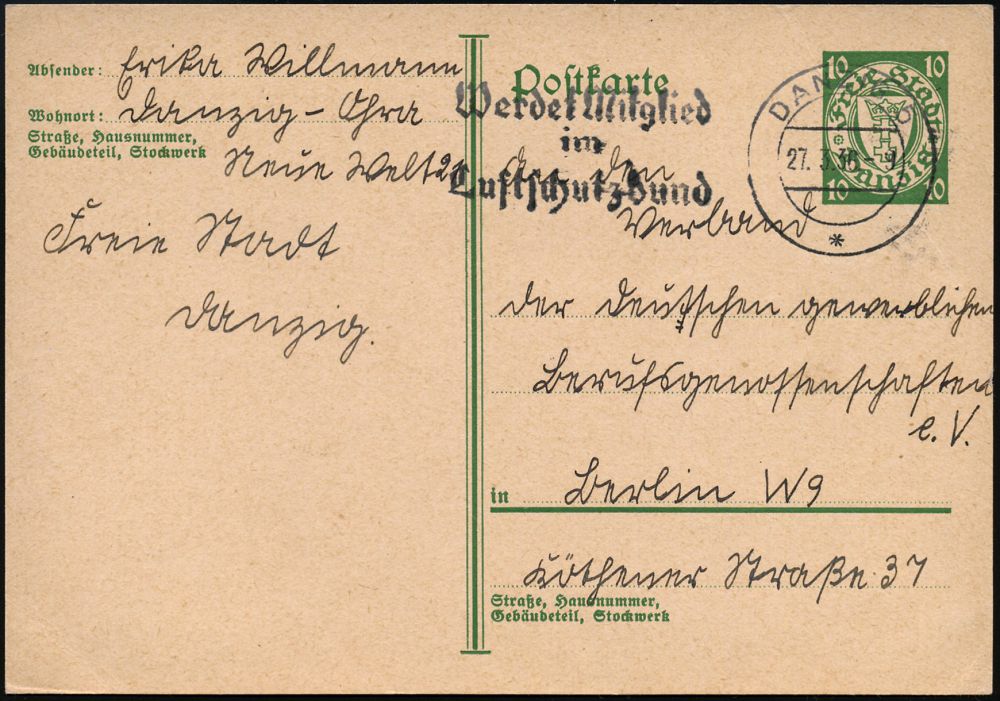 Absender: Erika Willmann
Wohnort: Danzig-Ohra
Straße, Hausnummer,
Gebäudeteil, Stockwerk
Neue Welt
Freie Stadt
Danzig.
Postkarte
Werdet Mitglied
im
Luftschutzbund
DANZIG
27. 3. 36
c
*
10 10
Freie Stadt
Danzig
10 10
An den
Verband
der deutschen gewerblichen
Berufsgenossenschaften
e. V.
in Berlin W9
Köthener Straße 37
Straße, Hausnummer,
Gebäudeteil, Stockwerk